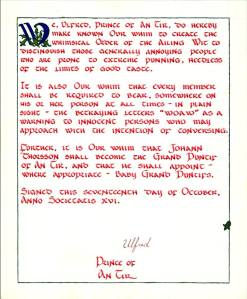 We, Ulfred, Prince of An Tir, do hereby
make known Our whim to create the
whimsical Order of the Ailing Wit to
distinguish those generally annoying people
who are prone to extreme punning, heedless
of the limits of good taste.
It is also Our whim that every member
shall be required to bear, somewhere on
his or her person at all times - in plain
sight - the betraying letters "WOAW" as a
warning to innocent persons who may
approach with the intention of conversing.
Further, it is Our whim that Johann
Thorsson shall become the Grand Puntif
of An Tir, and that he shall appoint -
where appropriate - Baby Grand Puntifs.
Signed this seventeenth day of October,
Anno Societatis XVI.
Ulfred
Prince of
An Tir